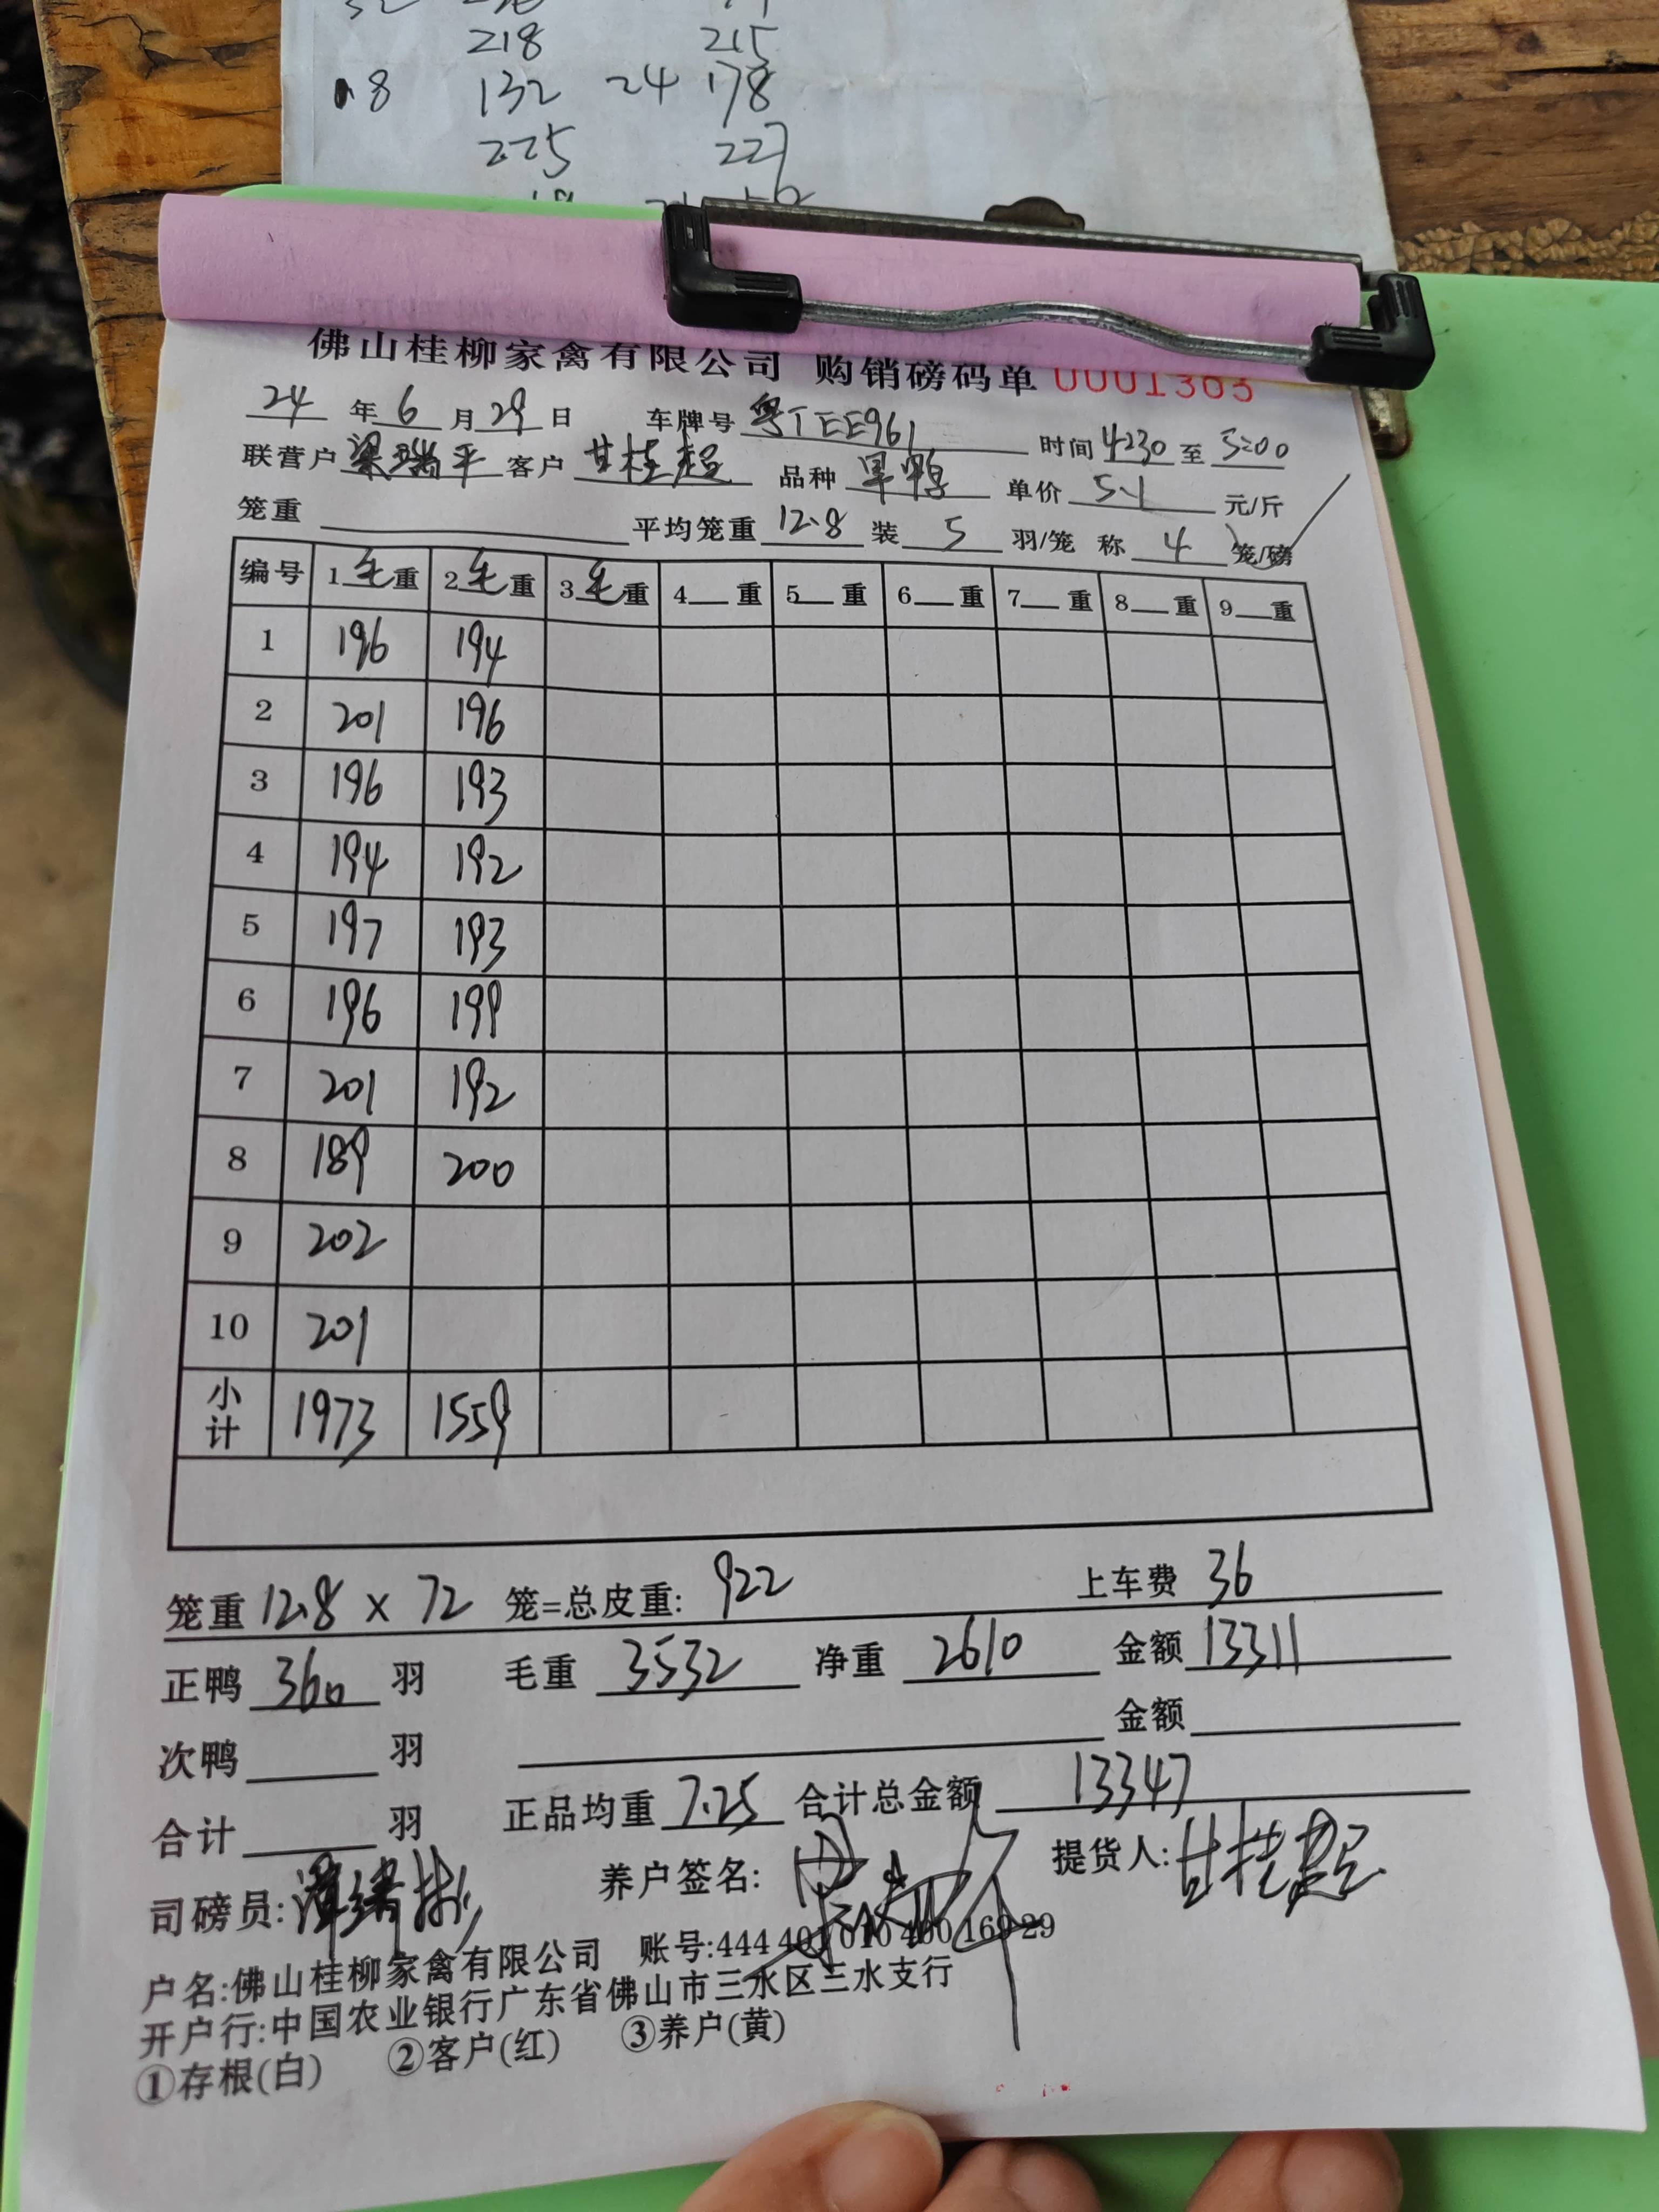 218 215
8 132 24 178
225 227
佛山桂柳家禽有限公司 购销磅码单 0001363
24 年 6 月 29 日 车牌号 粤TEE961 时间 4:30 至 5:00
联营户 梁瑞平 客户 甘桂超 品种 单价 5.1 元/斤
笼重 平均笼重 12.8 装 5 羽/笼 称 4 笼/磅
编号 1毛重 2毛重 3毛重 4 重 5 重 6 重 7 重 8 重 9 重
1 196 194
2 201 196
3 196 193
4 194 192
5 197 193
6 196 199
7 201 192
8 189 200
9 202
10 201
小计 1973 1559
笼重 12.8 x 72 笼=总皮重: 922 上车费 36
正鸭 360 羽 毛重 3532 净重 2610 金额 13311
次鸭 羽 金额
合计 羽 正品均重 7.25 合计总金额 13347
司磅员: 养户签名: 提货人: 甘桂超
户名:佛山桂柳家禽有限公司 账号:444 401 010 400 169 29
开户行:中国农业银行广东省佛山市三水区三水支行
①存根(白) ②客户(红) ③养户(黄)